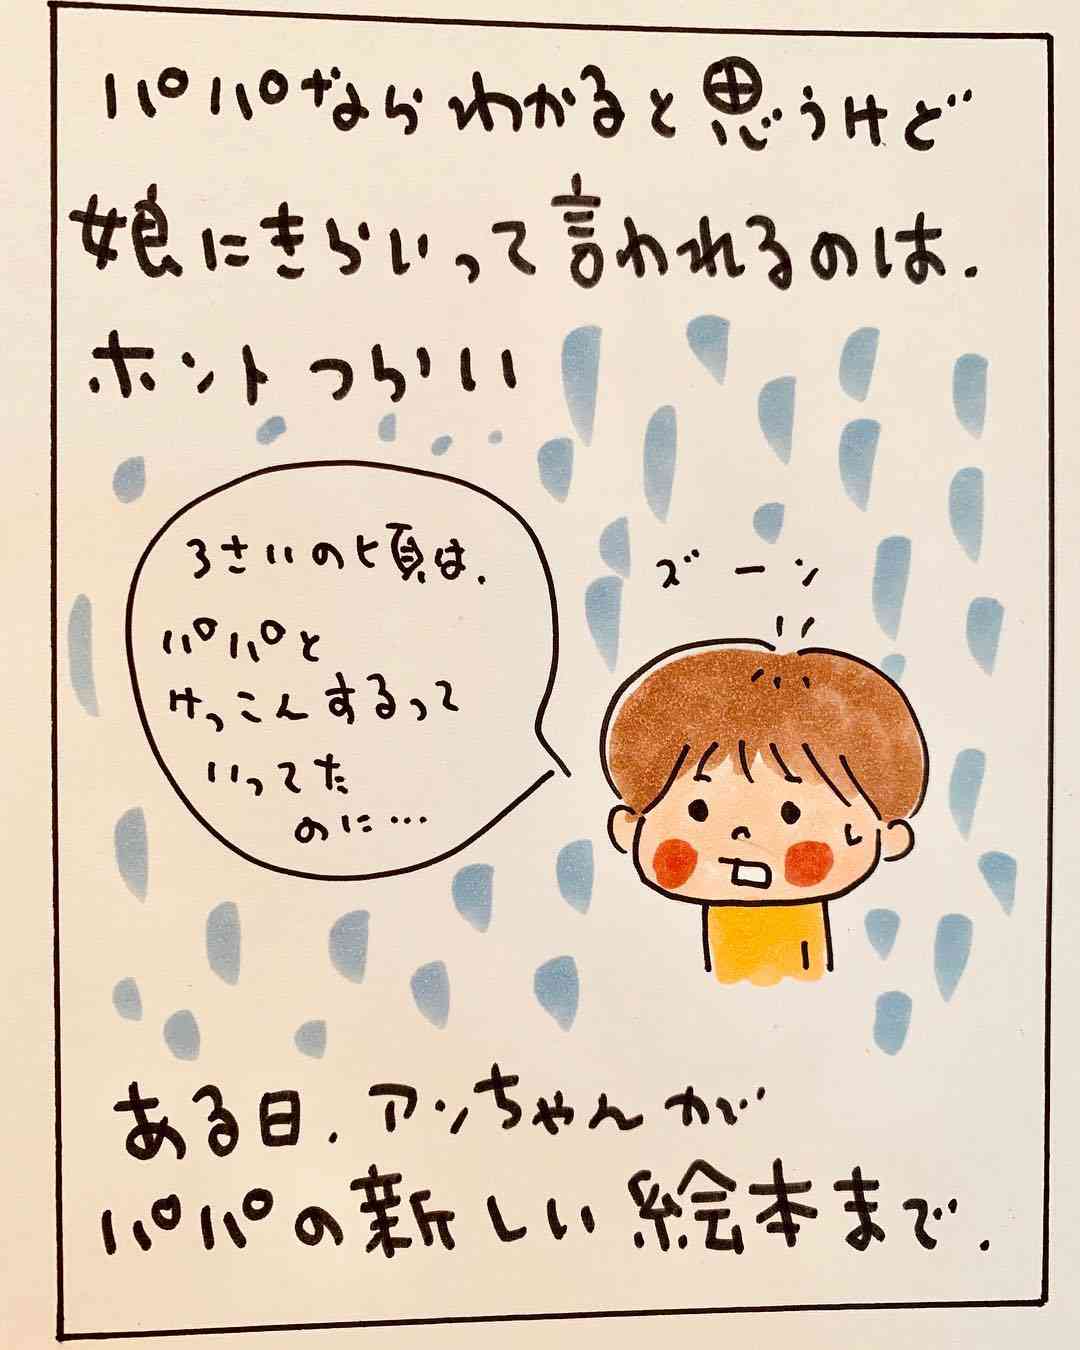 パパならわかると思うけど
娘にきらいって言われるのは.
ホントつらい
3さいの頃は.
パパと
けっこんするって
いってた
のに…
ズーン
ある日.アンちゃんが
パパの新しい絵本まで.